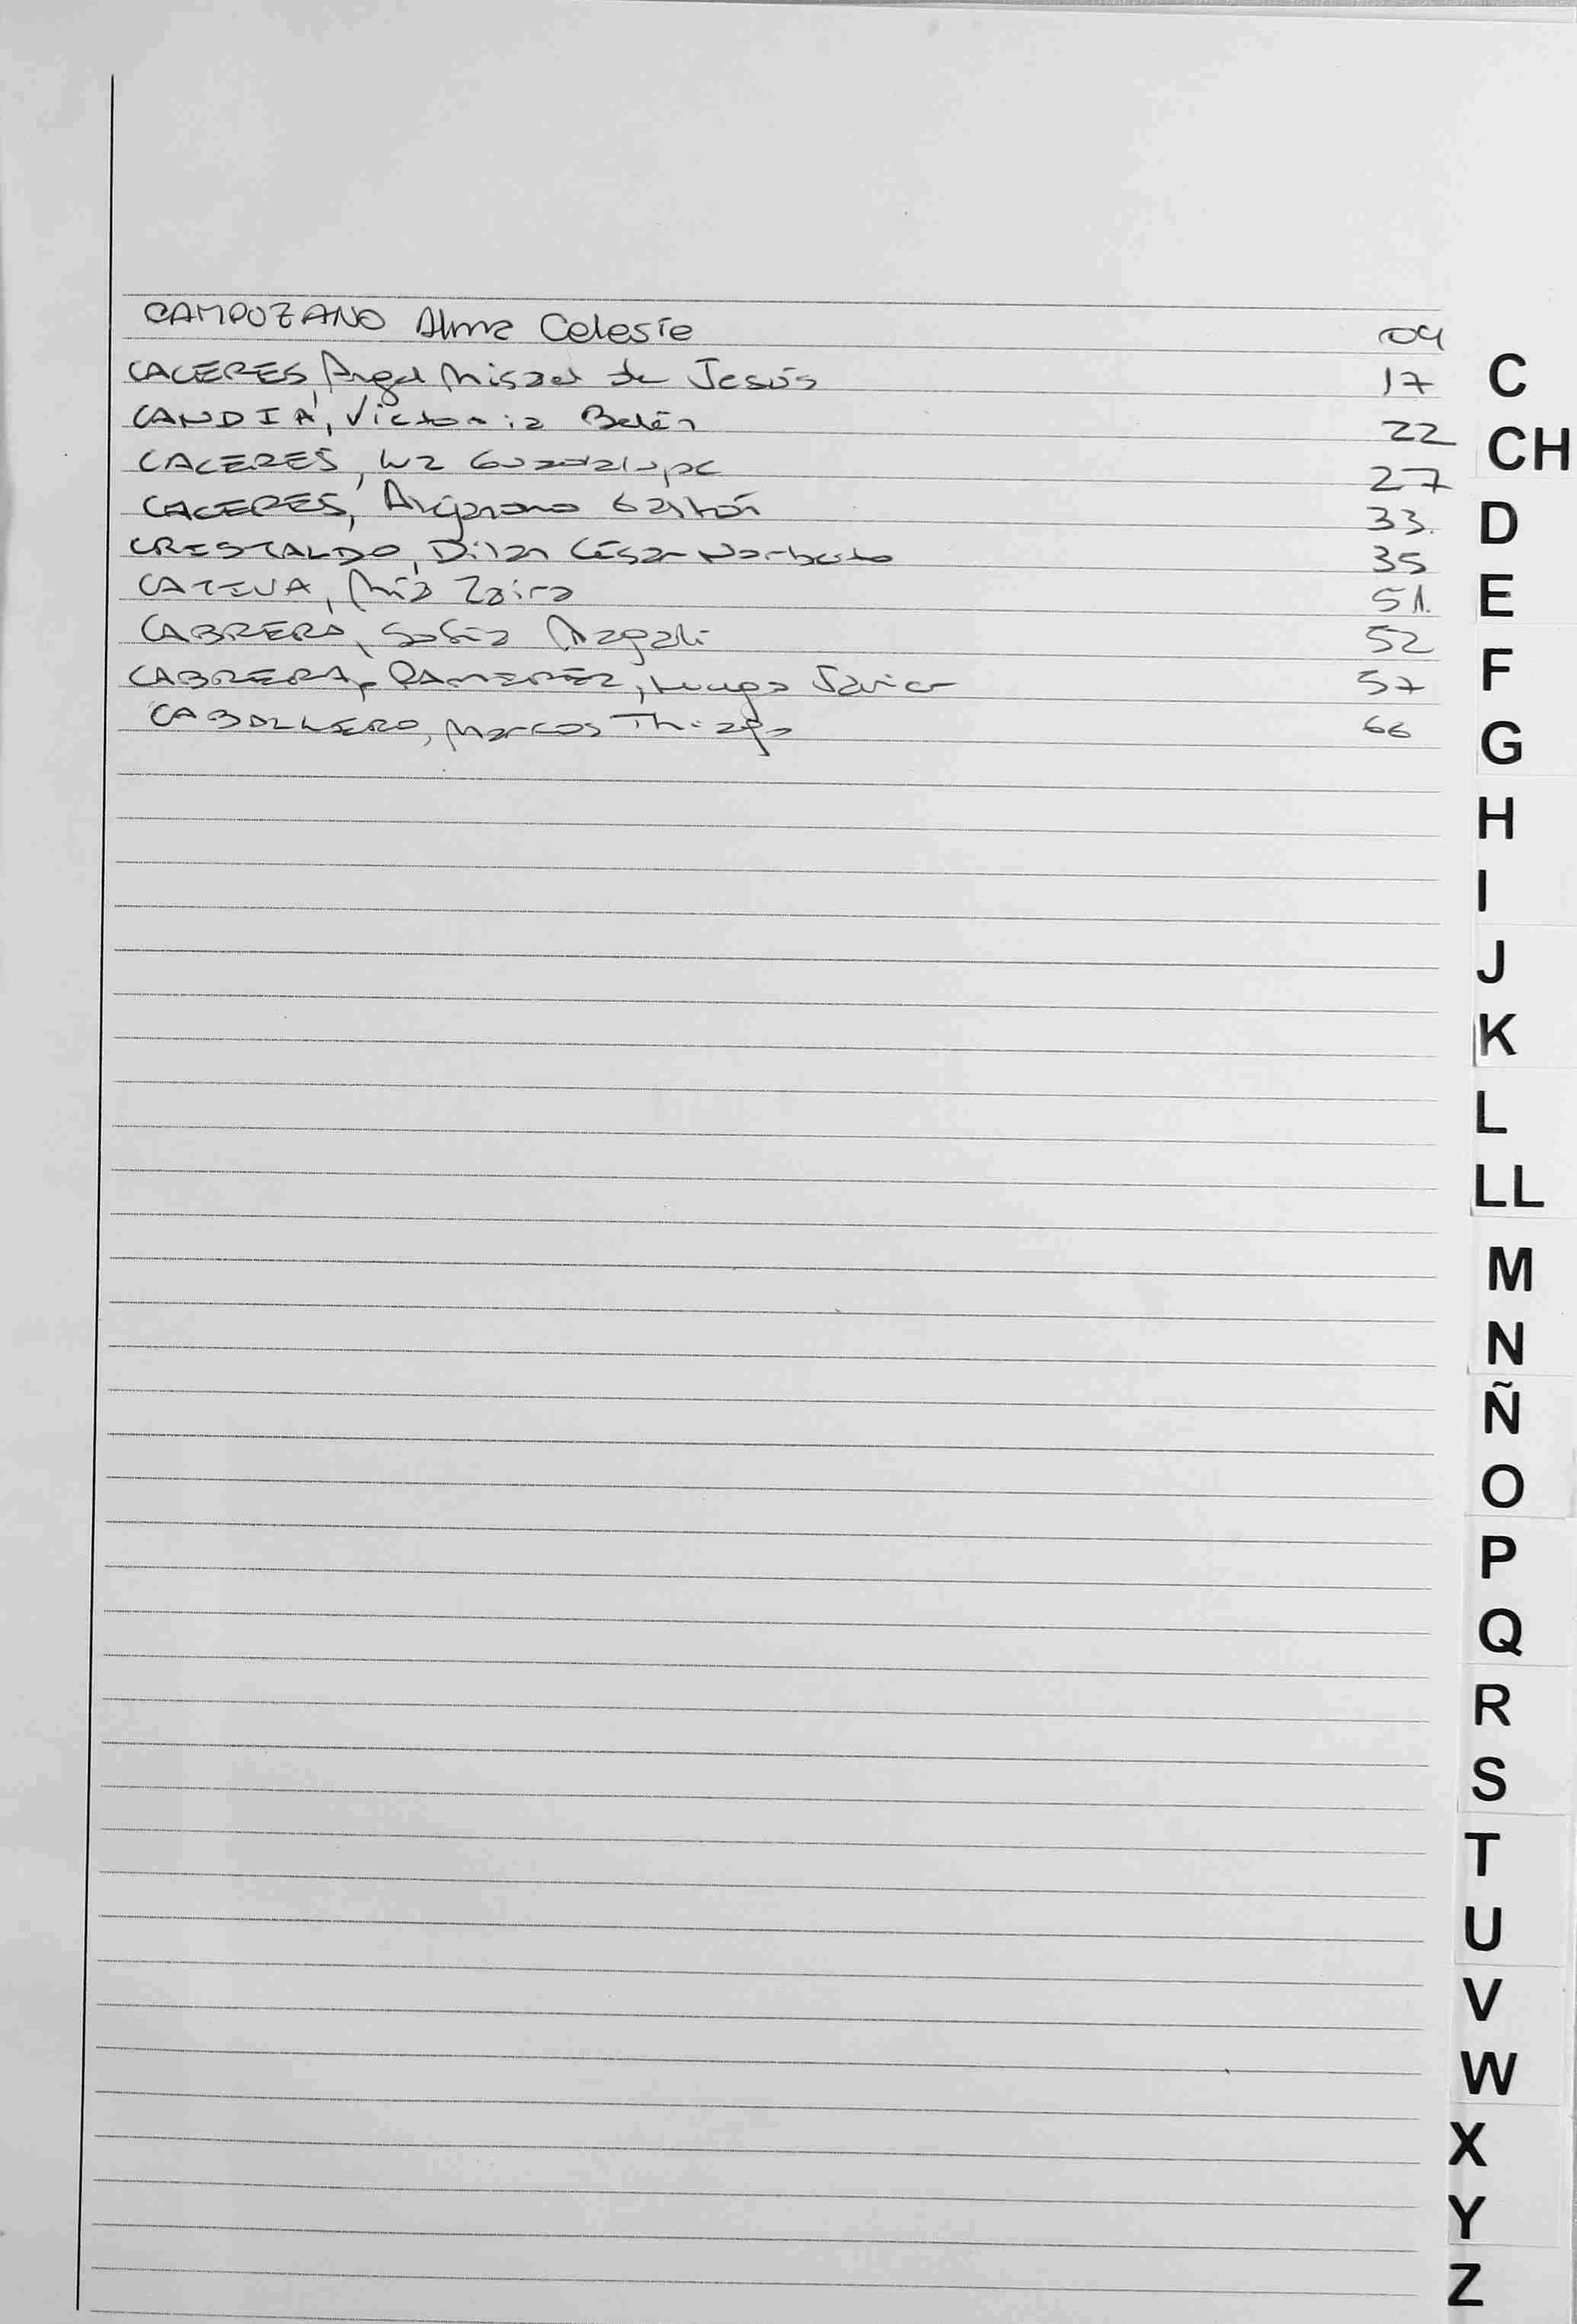 CAMPUZANO Alma Celeste 04
CACERES, Angel Misael de Jesús 17
CANDIA, Victoria Belén 22
CACERES, Luz Guadalupe 27
CACERES, Gastón 33.
CRESTALDO, Dilan César Norberto 35
CATIVA, Mía Zaira 51.
CABRERA, Sofía Magali 52
CABRERA, RAMIREZ, Javier 57
CABALLERO, Marcos Thiago 66
C
CH
D
E
F
G
H
I
J
K
L
LL
M
N
Ñ
O
P
Q
R
S
T
U
V
W
X
Y
Z